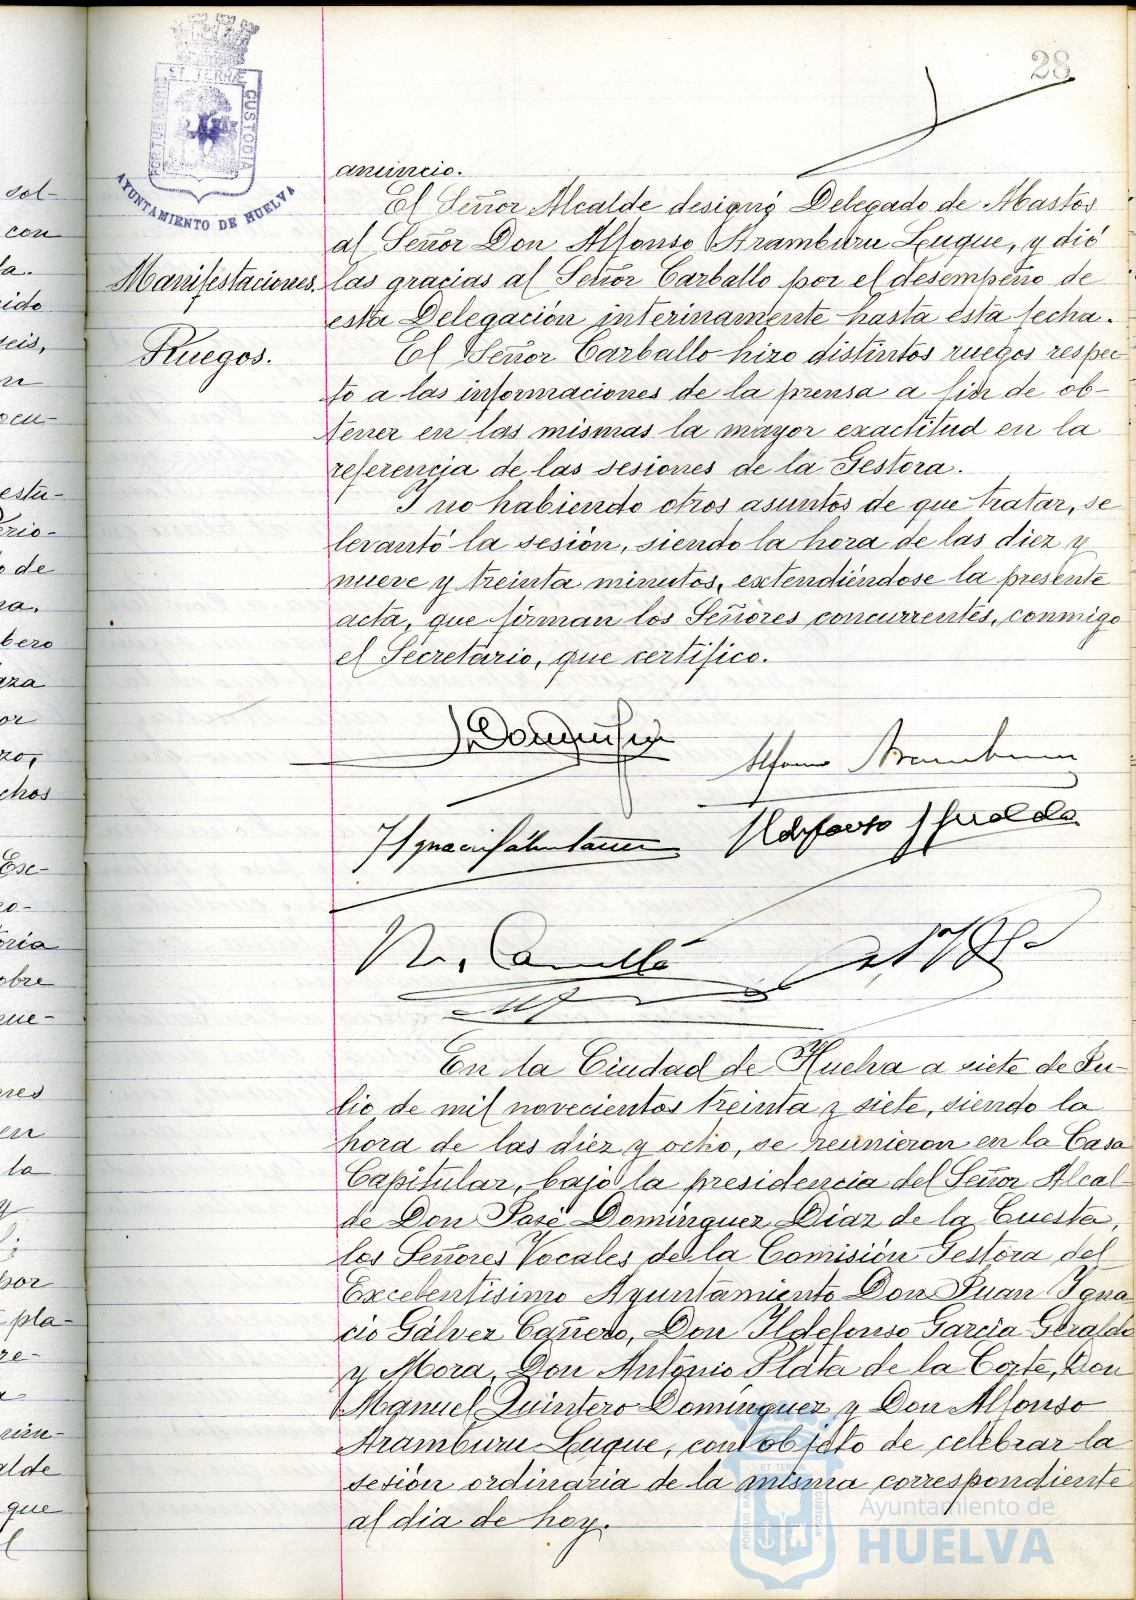 28
ET TERRÆ
CUSTODIA
AYUNTAMIENTO DE HUELVA
anuncio.
El Señor Alcalde designó Delegado de Abastos
al Señor Don Alfonso Aramburu Luque, y dió
Manifestaciones. las gracias al Señor Carballo por el desempeño de
esta Delegación interinamente hasta esta fecha.
Ruegos. El Señor Carballo hizo distintos ruegos respec-
to a las informaciones de la prensa a fin de ob-
tener en las mismas la mayor exactitud en la
referencia de las sesiones de la Gestora.
Y no habiendo otros asuntos de que tratar, se
levantó la sesión, siendo la hora de las diez y
nueve y treinta minutos, extendiéndose la presente
acta, que firman los Señores concurrentes, conmigo
el Secretario, que certifico.
Alfonso Aramburu
En la Ciudad de Huelva a siete de Ju-
lio de mil novecientos treinta y siete, siendo la
hora de las diez y ocho, se reunieron en la Casa
Capitular, bajo la presidencia del Señor Alcal-
de Don José Domínguez Díaz de la Cuesta,
los Señores Vocales de la Comisión Gestora del
Excelentísimo Ayuntamiento Don Juan Igna
cio Gálvez Cañero, Don Ildefonso García Geraldo
y Mora, Don António Plata de la Corte, Don
Manuel Quintero Domínguez y Don Alfonso
Aramburu Luque, con objeto de celebrar la
sesión ordinaria de la misma correspondiente
al dia de hoy.
Ayuntamiento de
HUELVA
sol-
con
seis,
ocu-
estu-
o de
chos
Esc-
oria
obre
que-
en
la
por
pla-
alde
que